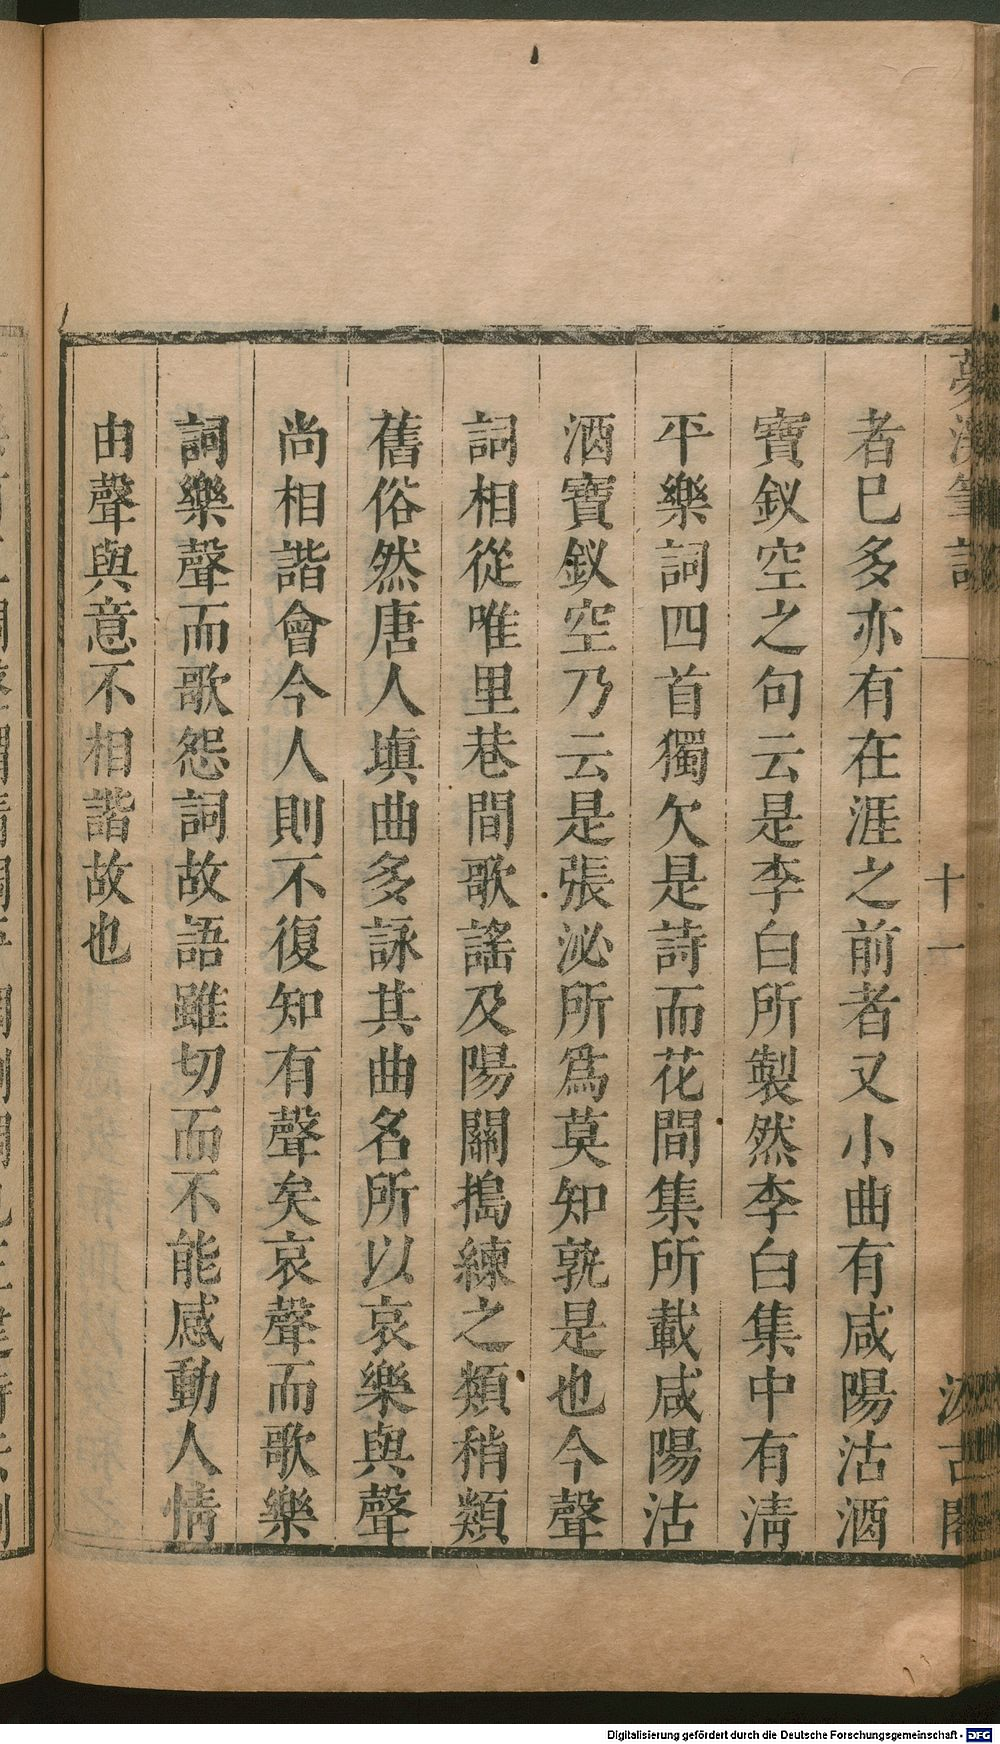 者已多亦有在涯之前者又小曲有咸陽沽酒
寶釵空之句云是李白所製然李白集中有淸
平樂詞四首獨欠是詩而花間集所載咸陽沽
酒寶釵空乃云是張泌所爲莫知孰是也今聲
詞相從唯里巷間歌謠及陽關搗練之類稍類
舊俗然唐人塡曲多詠其曲名所以哀樂與聲
尚相諧會今人則不復知有聲矣哀聲而歌樂
詞樂聲而歌怨詞故語雖切而不能感動人情
由聲與意不相諧故也
十一
Digitalisierung gefördert durch die Deutsche Forschungsgemeinschaft - DFG